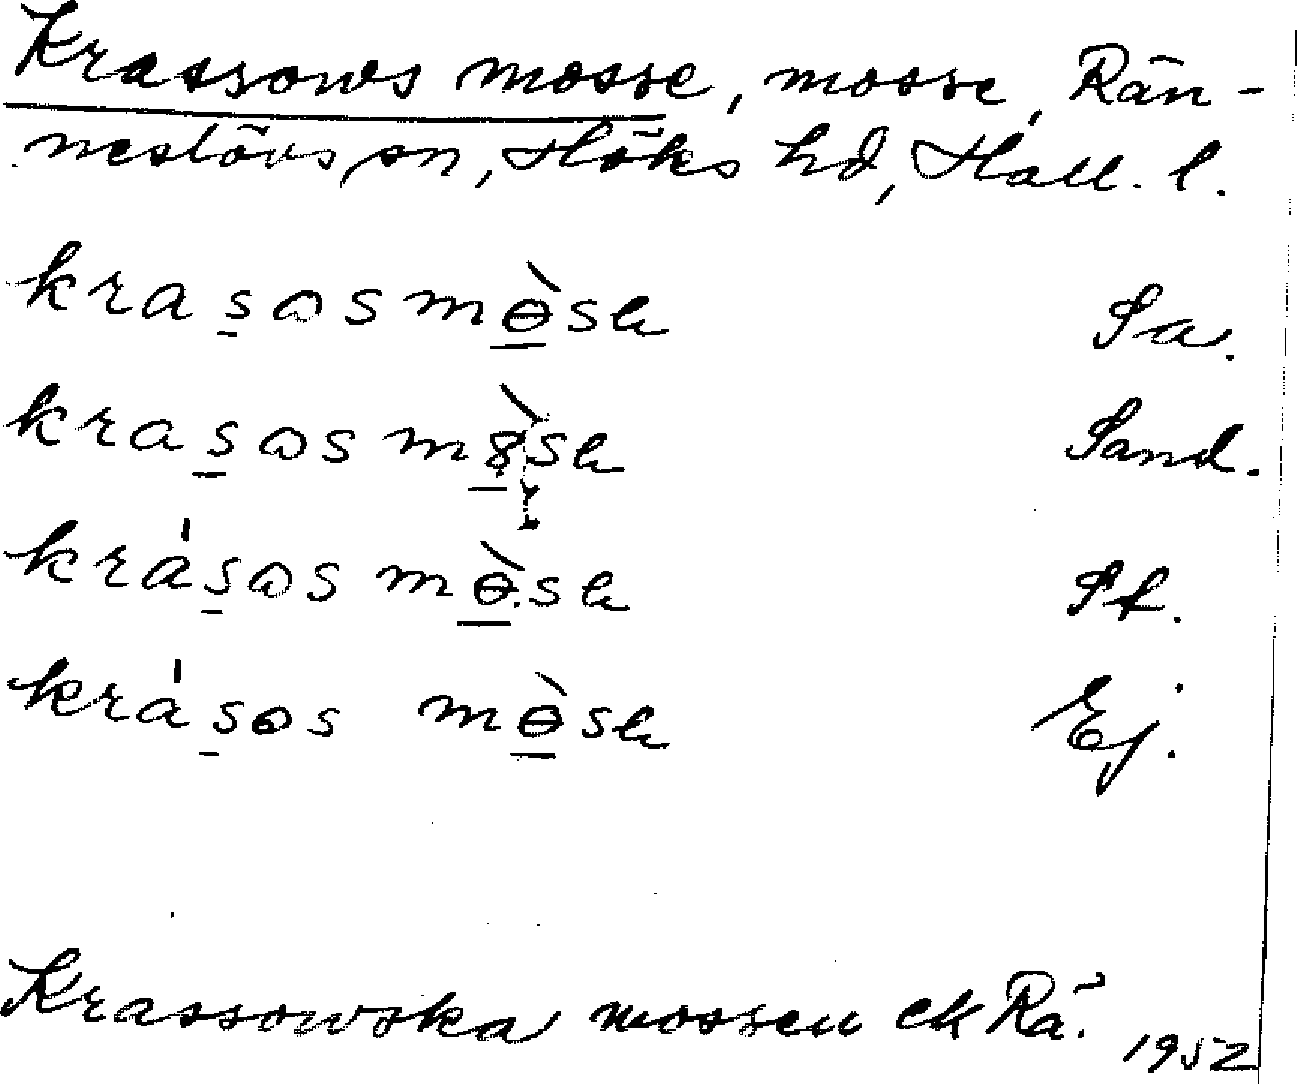 Krassows mosse, mosse, Rän-
neslövs sn, Höks hd, Hall. l.
krasosmòse Sa.
krasosmòse Sand.
krásosmòse St.
krásos mòse Ej.
Krassowska mossen ek Rä. 1952